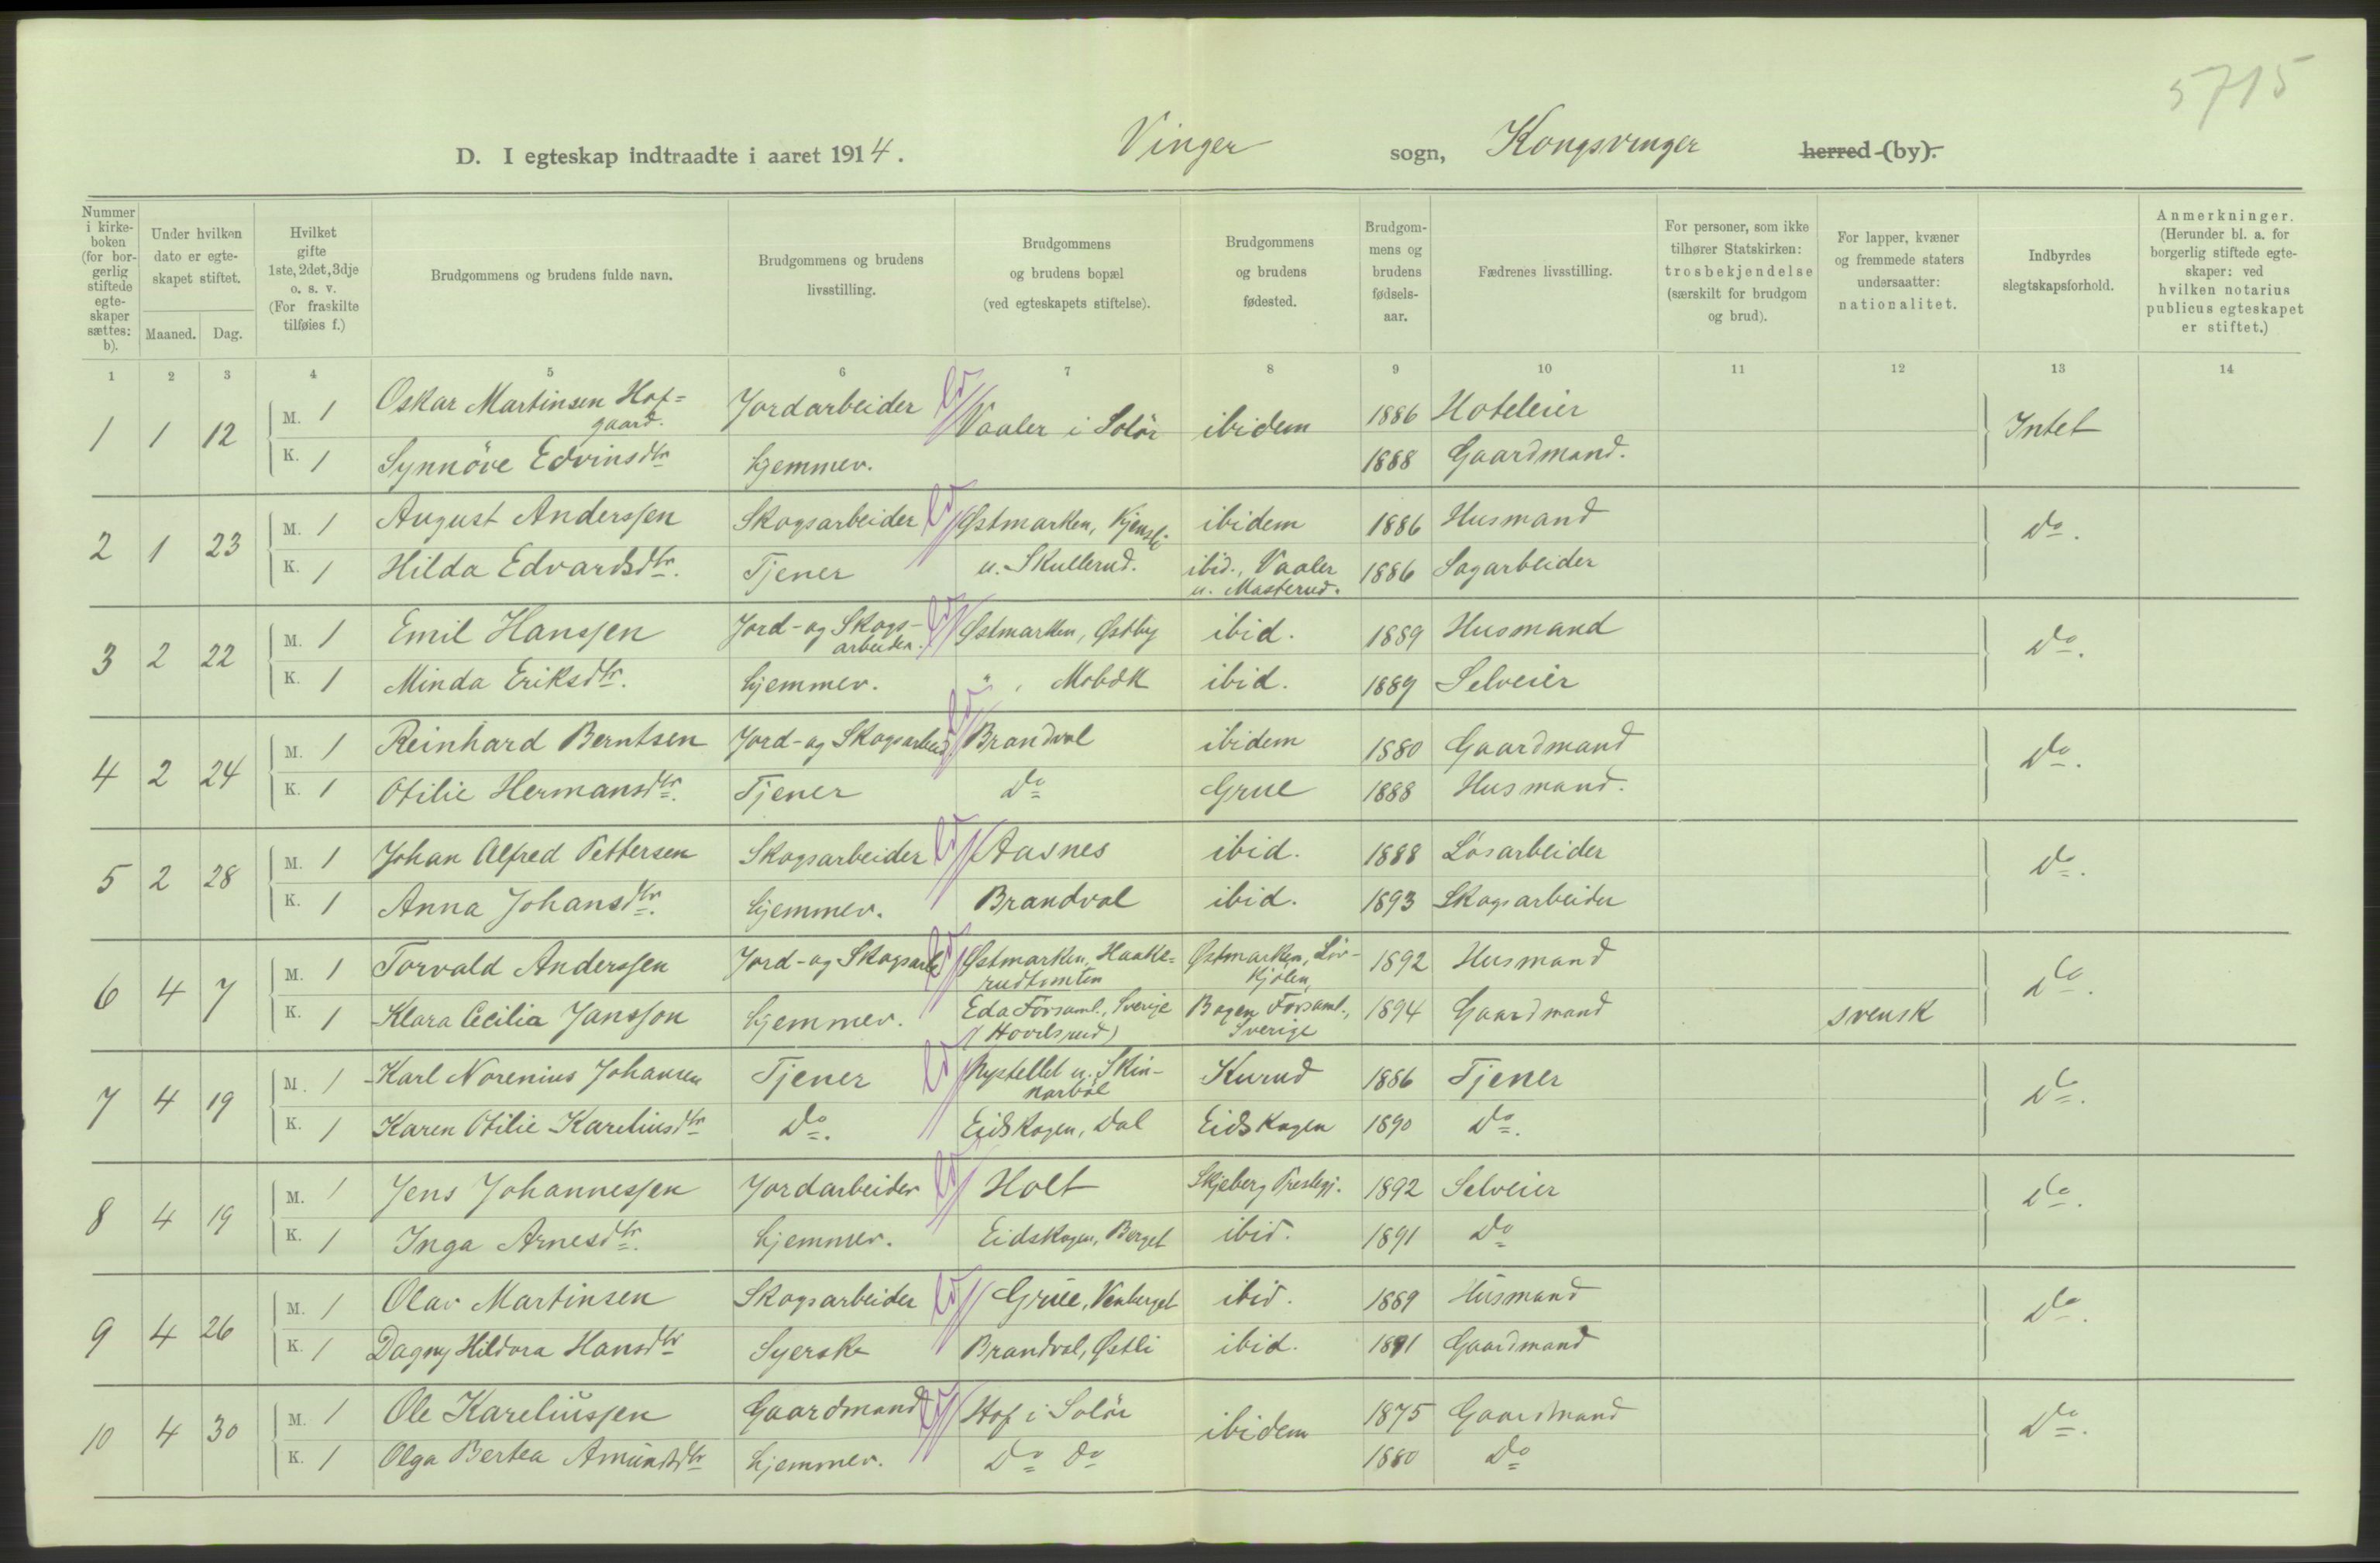 5715
D. I egteskap indtraadte i aaret 1914. Vinger sogn, Kongsvinger herred (by).
Nummer i kirke- boken (for bor- gerlig stiftede egte- skaper sættes: b).
Under hvilken dato er egte- skapet stiftet.
Maaned. Dag.
Hvilket gifte 1ste, 2det, 3dje o. s. v. (For fraskilte tilføies f.)
Brudgommens og brudens fulde navn.
Brudgommens og brudens livsstilling.
Brudgommens og brudens bopæl (ved egteskapets stiftelse).
Brudgommens og brudens fødested.
Brudgom- mens og brudens fødsels- aar.
Fædrenes livsstilling.
For personer, som ikke tilhører Statskirken: trosbekjendelse (særskilt for brudgom og brud).
For lapper, kvæner og fremmede staters undersaatter: nationalitet.
Indbyrdes slegtskapsforhold.
Anmerkninger. (Herunder bl. a. for borgerlig stiftede egte- skaper: ved hvilken notarius publicus egteskapet er stiftet.)
1 2 3 4 5 6 7 8 9 10 11 12 13 14
1 1 12 M. 1 Oskar Martinsen Hof= gaard. Jordarbeider Vaaler i Solör ibidem 1886 Hoteleier Intet
K. 1 Synnöve Edvinsdtr hjemmev. 1888 Gaardmand.
2 1 23 M. 1 August Anderssen Skogsarbeider Østmarken, Kjensli ibidem 1886 Husmand Do.
K. 1 Hilda Edvardsdtr. Tjener u. Skullerud. ibid., Vaaler u. Masterud. 1886 Sagarbeider
3 2 22 M. 1 Emil Hanssen Jord- og Skogs- arbeider. Østmarken, Østby ibid. 1889 Husmand Do.
K. 1 Minda Eriksdtr. hjemmev. " , Mobæk ibid. 1889 Selveier
4 2 24 M. 1 Reinhard Berntsen Jord- og Skogsarbeid Brandval ibidem 1880 Gaardmand Do.
K. 1 Otilie Hermansdtr. Tjener Do Grue 1888 Husmand.
5 2 28 M. 1 Johan Alfred Pettersen Skogsarbeider Aasnes ibid. 1888 Lösarbeider Do.
K. 1 Anna Johansdtr. hjemmev. Brandval ibid. 1893 Skogsarbeider
6 4 7 M. 1 Torvald Anderssen Jord- og Skogsarb Østmarken, Haake= rudtomten Østmarken, Löv- kjölen, 1892 Husmand Do.
K. 1 Klara Cecilia Jansson hjemmev. Eda Församl., Sverige (Hovilsrud) Bogen Församl., Sverige 1894 Gaardmand svensk
7 4 19 M. 1 Karl Norenius Johansen Tjener Rystellet u. Skin- narböl Kurud 1886 Tjener Do.
K. 1 Karen Otilie Kareliusdtr Do. Eidskogen, Dal Eidskogen 1890 Do.
8 4 19 M. 1 Jens Johannessen Jordarbeider Holt Skjeberg Prestegj. 1892 Selveier Do.
K. 1 Inga Arnesdtr. hjemmev. Eidskogen, Berget ibid. 1891 Do
9 4 26 M. 1 Olav Martinsen Skogsarbeider Grue, Venberget ibid. 1889 Husmand Do.
K. 1 Dagny Hildora Hansdtr Syerske Brandval, Østli ibid. 1891 Gaardmand
10 4 30 M. 1 Ole Kareliussen Gaardmand Hof i Solör ibidem 1875 Gaardmand Do.
K. 1 Olga Bertea Amundsdtr hjemmev. Do Do 1880 Do